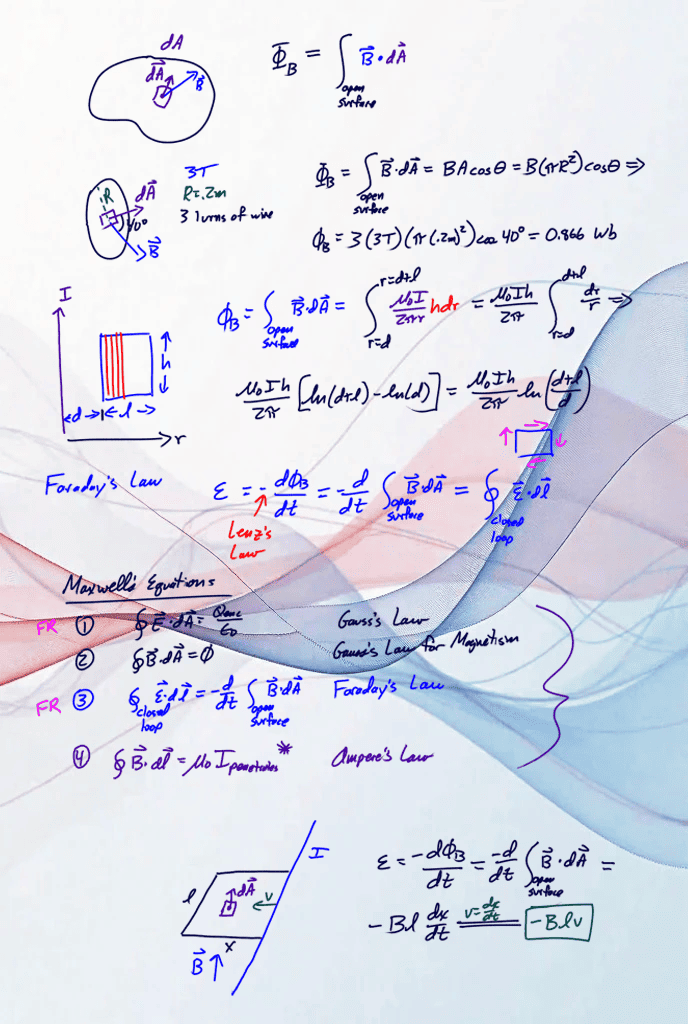 dA
dA⃗
B⃗
Φ_B = ∫_{open surface} B⃗·dA⃗
R
dA⃗
40°
B⃗
3T
R=.2m
3 turns of wire
Φ_B = ∫_{open surface} B⃗·dA⃗ = BAcosθ = B(πR²)cosθ ⇒
ϕ_B = 3(3T)(π(.2m)²)cos 40° = 0.866 Wb
I
h
d
l
r
ϕ_B = ∫_{open surface} B⃗·dA⃗ = ∫_{r=d}^{r=d+l} μ₀I/2πr hdr = μ₀Ih/2π ∫_{r=d}^{d+l} dr/r ⇒
μ₀Ih/2π [ln(d+l)-ln(d)] = μ₀Ih/2π ln((d+l)/d)
Faraday's Law
ε = -dΦ_B/dt = -d/dt ∫_{open surface} B⃗·dA⃗ = ∮_{closed loop} ε⃗·dl⃗
Lenz's Law
Maxwell's Equations
FR ① ∮E⃗·dA⃗ = Qenc/ε₀ Gauss's Law
② ∮B⃗·dA⃗ = ϕ Gauss's Law for Magnetism
FR ③ ∮_{closed loop} ε⃗·dl⃗ = -d/dt ∫_{open surface} B⃗·dA⃗ Faraday's Law
④ ∮B⃗·dl⃗ = μ₀ I_{penetrates}* Ampere's Law
l
dA⃗
v
I
x
B⃗
ε = -dΦ_B/dt = -d/dt ∫_{open surface} B⃗·dA⃗ =
-Bl dx/dt v=dx/dt -Blv